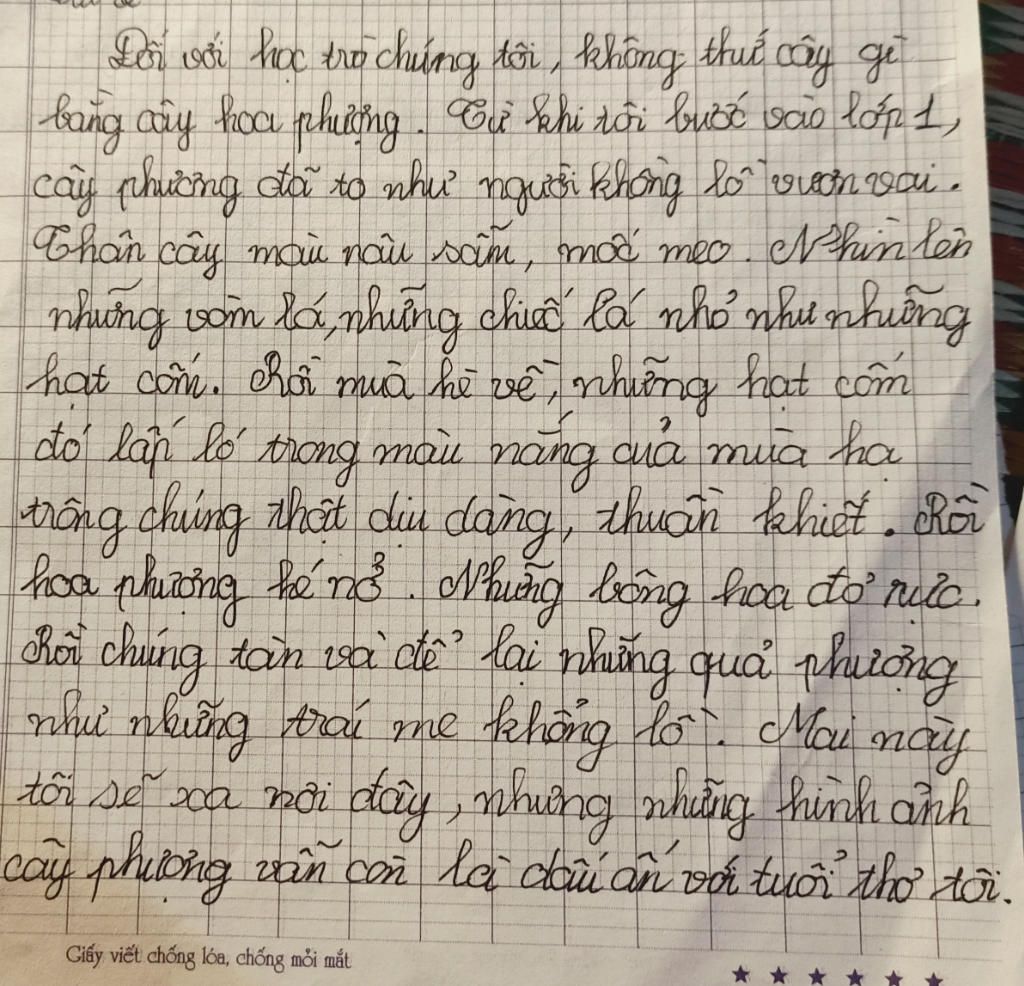 Đối với học trò chúng tôi, không thứ cây gì
bằng cây hoa phượng. Từ khi tôi bước vào lớp 1,
cây phượng đã to như người khổng lồ vươn vai.
Thân cây màu nâu sẫm, mốc meo. Nhìn lên
những vòm lá, những chiếc lá nhỏ như những
hạt cốm. Rồi mùa hè về, những hạt cốm
đó lấp ló trong màu nắng của mùa hạ
trông chúng thật dịu dàng, thuần khiết. Rồi
hoa phượng hé nở. Những bông hoa đỏ rực.
Rồi chúng tàn và để lại những quả phượng
như những trái me khổng lồ. Mai này
tôi sẽ xa nơi đây, nhưng những hình ảnh
cây phượng vẫn còn là dấu ấn với tuổi thơ tôi.
Giấy viết chống lóa, chống mỏi mắt